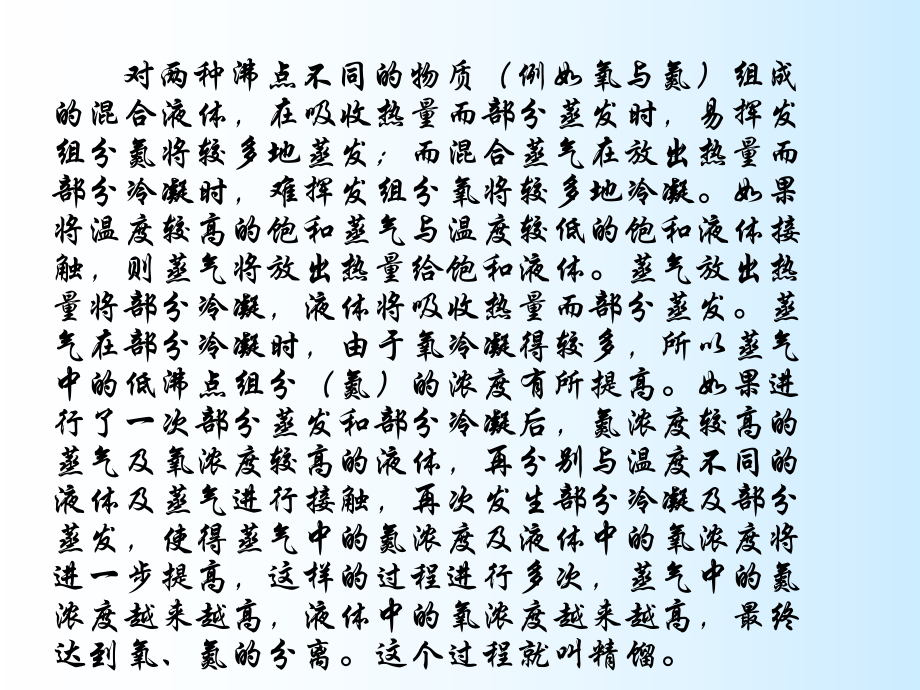 对两种沸点不同的物质（例如氧与氮）组成
的混合液体，在吸收热量而部分蒸发时，易挥发
组分氮将较多地蒸发；而混合蒸气在放出热量而
部分冷凝时，难挥发组分氧将较多地冷凝。如果
将温度较高的饱和蒸气与温度较低的饱和液体接
触，则蒸气将放出热量给饱和液体。蒸气放出热
量将部分冷凝，液体将吸收热量而部分蒸发。蒸
气在部分冷凝时，由于氧冷凝得较多，所以蒸气
中的低沸点组分（氮）的浓度有所提高。如果进
行了一次部分蒸发和部分冷凝后，氮浓度较高的
蒸气及氧浓度较高的液体，再分别与温度不同的
液体及蒸气进行接触，再次发生部分冷凝及部分
蒸发，使得蒸气中的氮浓度及液体中的氧浓度将
进一步提高，这样的过程进行多次，蒸气中的氮
浓度越来越高，液体中的氧浓度越来越高，最终
达到氧、氮的分离。这个过程就叫精馏。